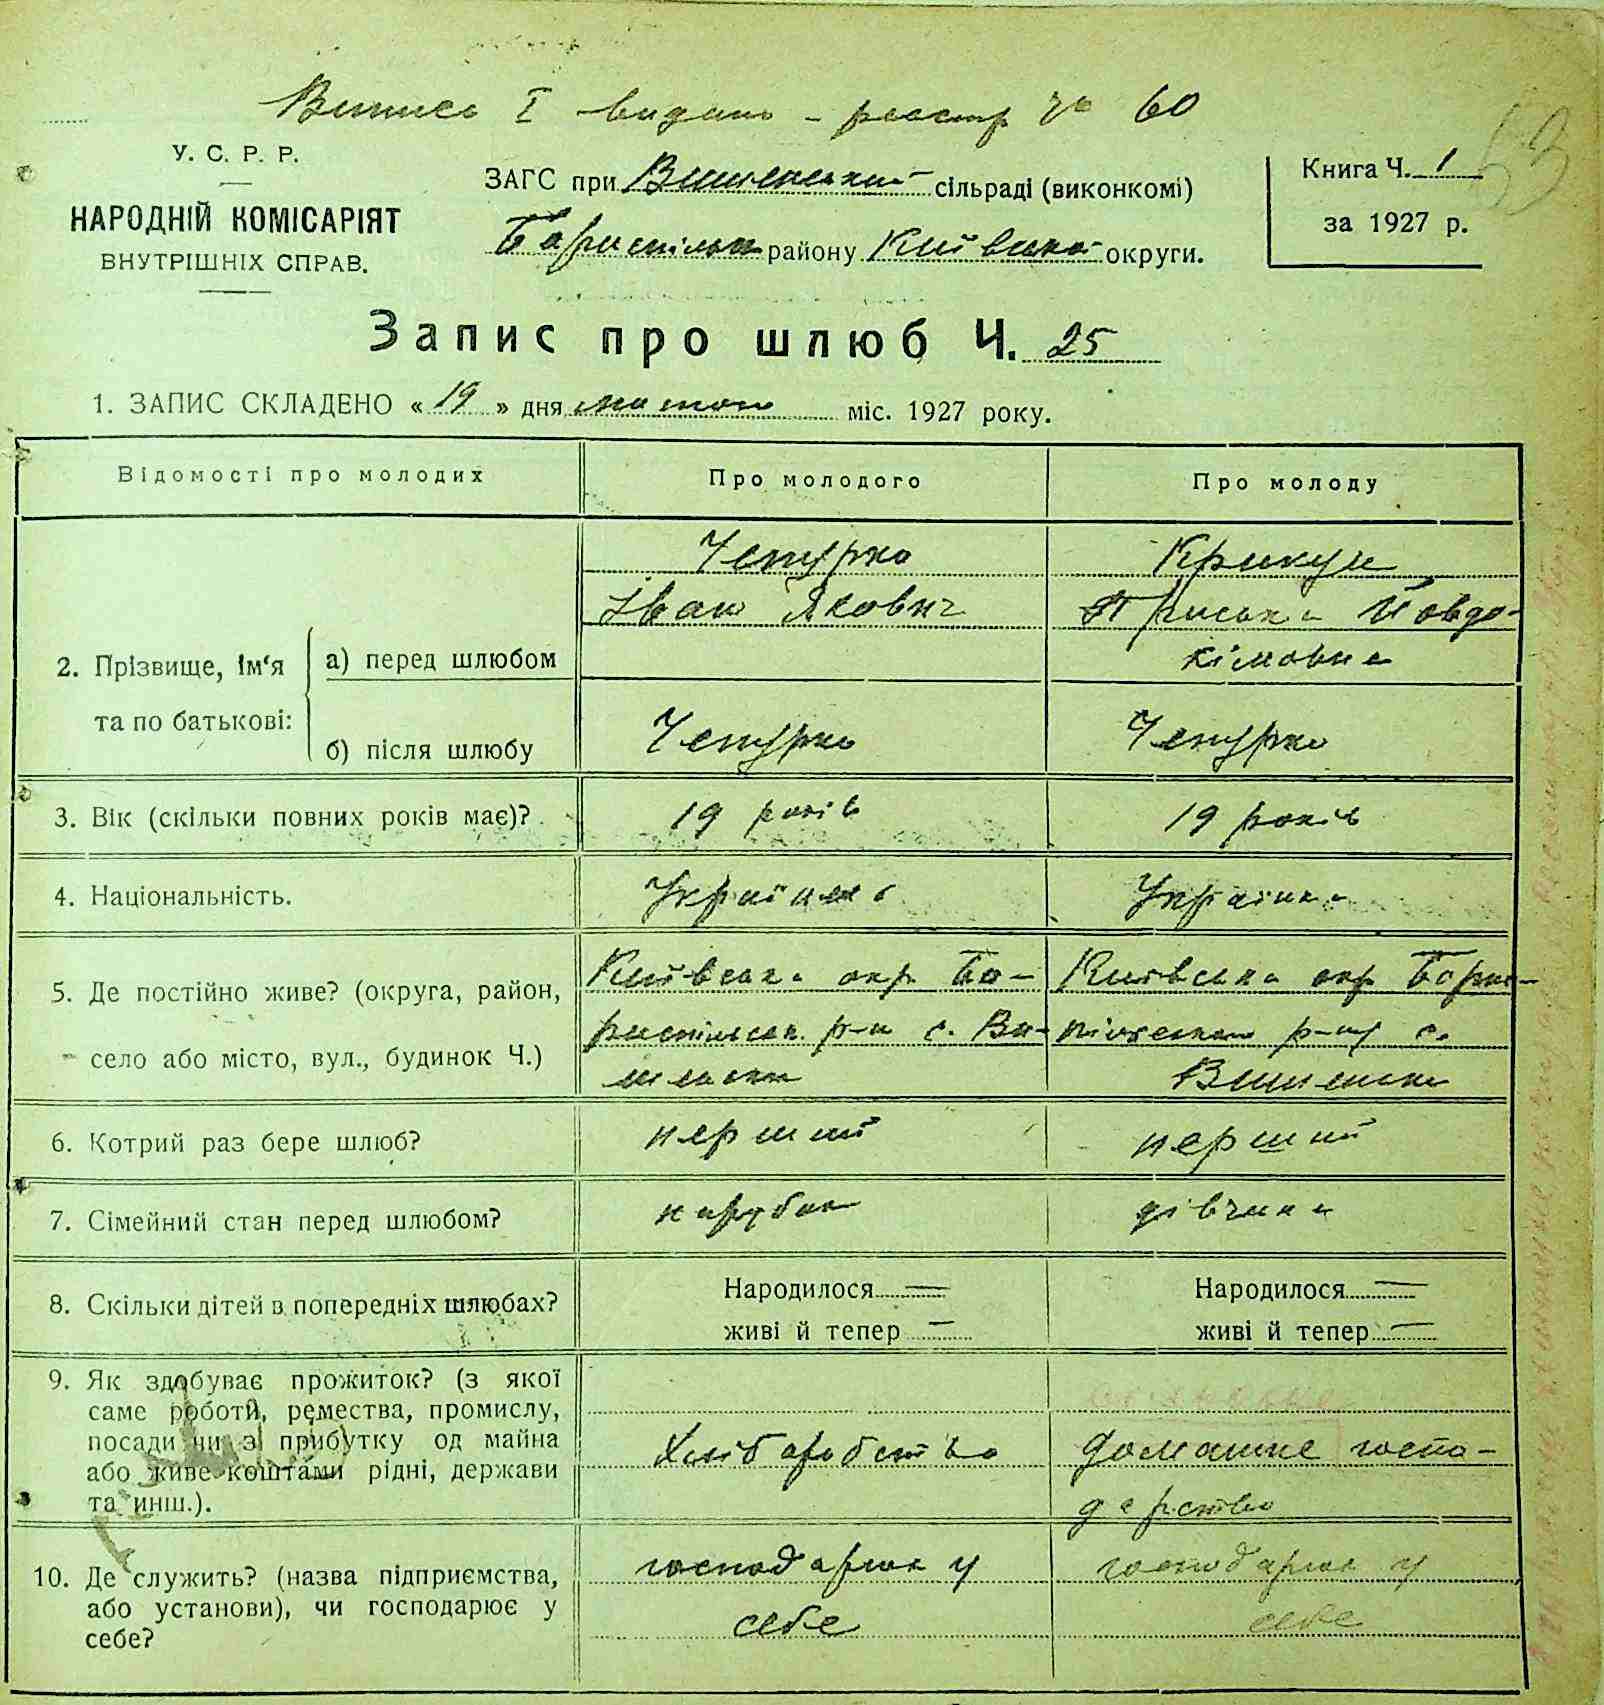 Випись І видано - реєстр № 60
53
У. С. Р. Р.
НАРОДНІЙ КОМІСАРІЯТ
ВНУТРІШНІХ СПРАВ.
ЗАГС при Вишеньській сільраді (виконкомі)
Бориспільськ району Київської округи.
Книга Ч. 1
за 1927 р.
Запис про шлюб Ч. 25
1. ЗАПИС СКЛАДЕНО « 19 » дня лютого міс. 1927 року.
Відомості про молодих
Про молодого
Про молоду
2. Прізвище, ім'я та по батькові:
а) перед шлюбом
Чепурко
Іван Якович
Крикун
Пріська Йовдо-
кімовна
б) після шлюбу
Чепурко
Чепурко
3. Вік (скільки повних років має)?
19 років
19 років
4. Національність.
Українець
Українка
5. Де постійно живе? (округа, район,
село або місто, вул., будинок Ч.)
Київська окр. Бо-
риспільськ. р-н с. Ви-
шеньки
Київська окр. Борис-
пільського р-ну с.
Вишеньки
6. Котрий раз бере шлюб?
перший
перший
7. Сімейний стан перед шлюбом?
парубок
дівчина
8. Скільки дітей в попередніх шлюбах?
Народилося —
живі й тепер —
Народилося —
живі й тепер —
9. Як здобуває прожиток? (з якої
саме роботи, ремества, промислу,
посади чи з прибутку од майна
або живе коштами рідні, держави
та инш.).
Хліборобство
домашнє госпо-
дарство
10. Де служить? (назва підприємства,
або установи), чи господарює у
себе?
господарює у
себе
господарює у
себе